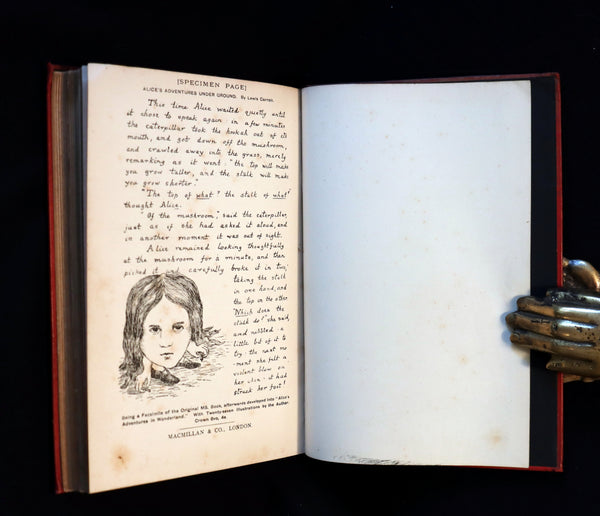 [SPECIMEN PAGE]
ALICE'S ADVENTURES UNDER GROUND. By Lewis Carroll.
This time Alice waited quietly until
it chose to speak again: in a few minutes
the caterpillar took the hookah out of its
mouth, and got down off the mushroom,
and crawled away into the grass, merely
remarking as it went: "the top will make
you grow taller, and the stalk will make
you grow shorter."
"The top of what? the stalk of what?"
thought Alice.
"Of the mushroom," said the caterpillar,
just as if she had asked it aloud, and
in another moment it was out of sight.
Alice remained looking thoughtfully
at the mushroom for a minute, and then
picked it and carefully broke it in two,
taking the stalk
in one hand, and
the top in the other.
"Which does the
stalk do?" she said,
and nibbled a
little bit of it to
try: the next mo-
ment she felt a
violent blow on
her chin: it had
struck her foot!
Being a Facsimile of the Original MS. Book, afterwards developed into "Alice's
Adventures in Wonderland." With Twenty-seven Illustrations by the Author.
Crown 8vo, 4s.
MACMILLAN & CO., LONDON.